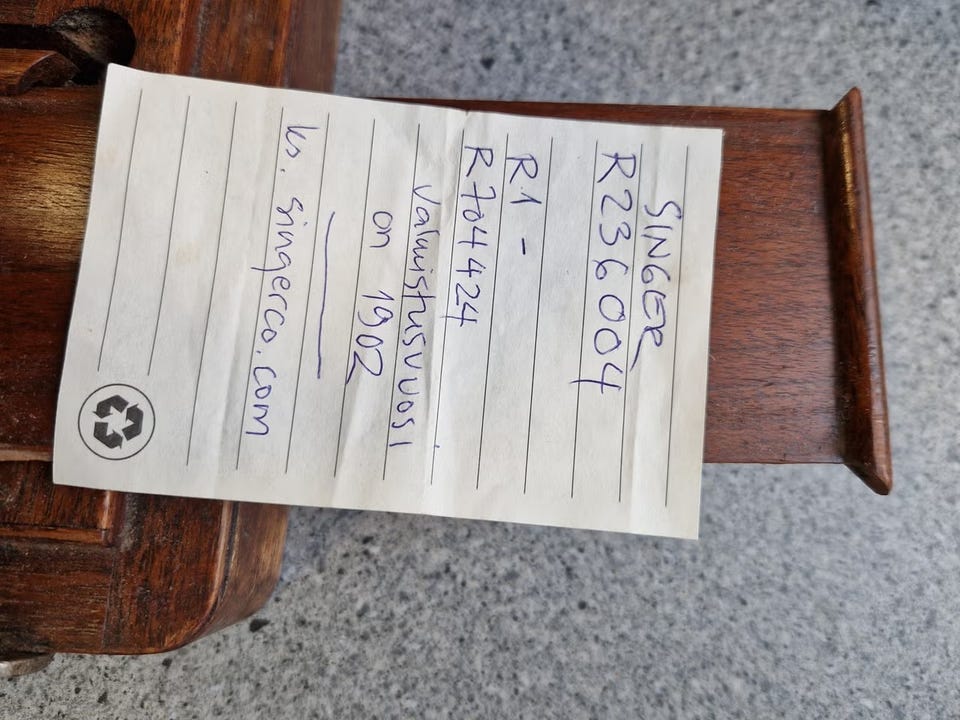 SINGER
R236004
R1 -
R704424
Valmistusvuosi
on 1902
ks. singerco.com